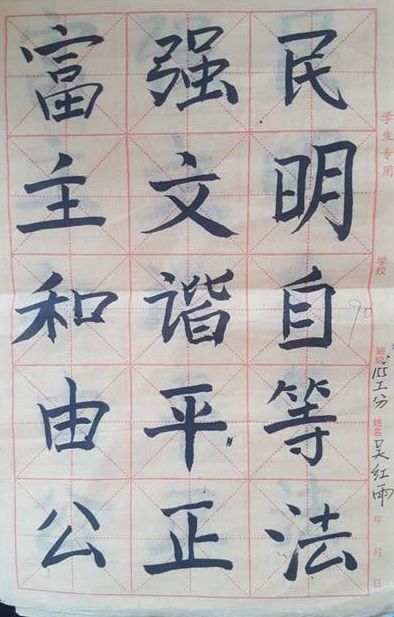 富强民
主文明
和谐自
由平等
公正法
学生专用
学校
90
班级 155工分
姓名 吴红雨
年 月 日